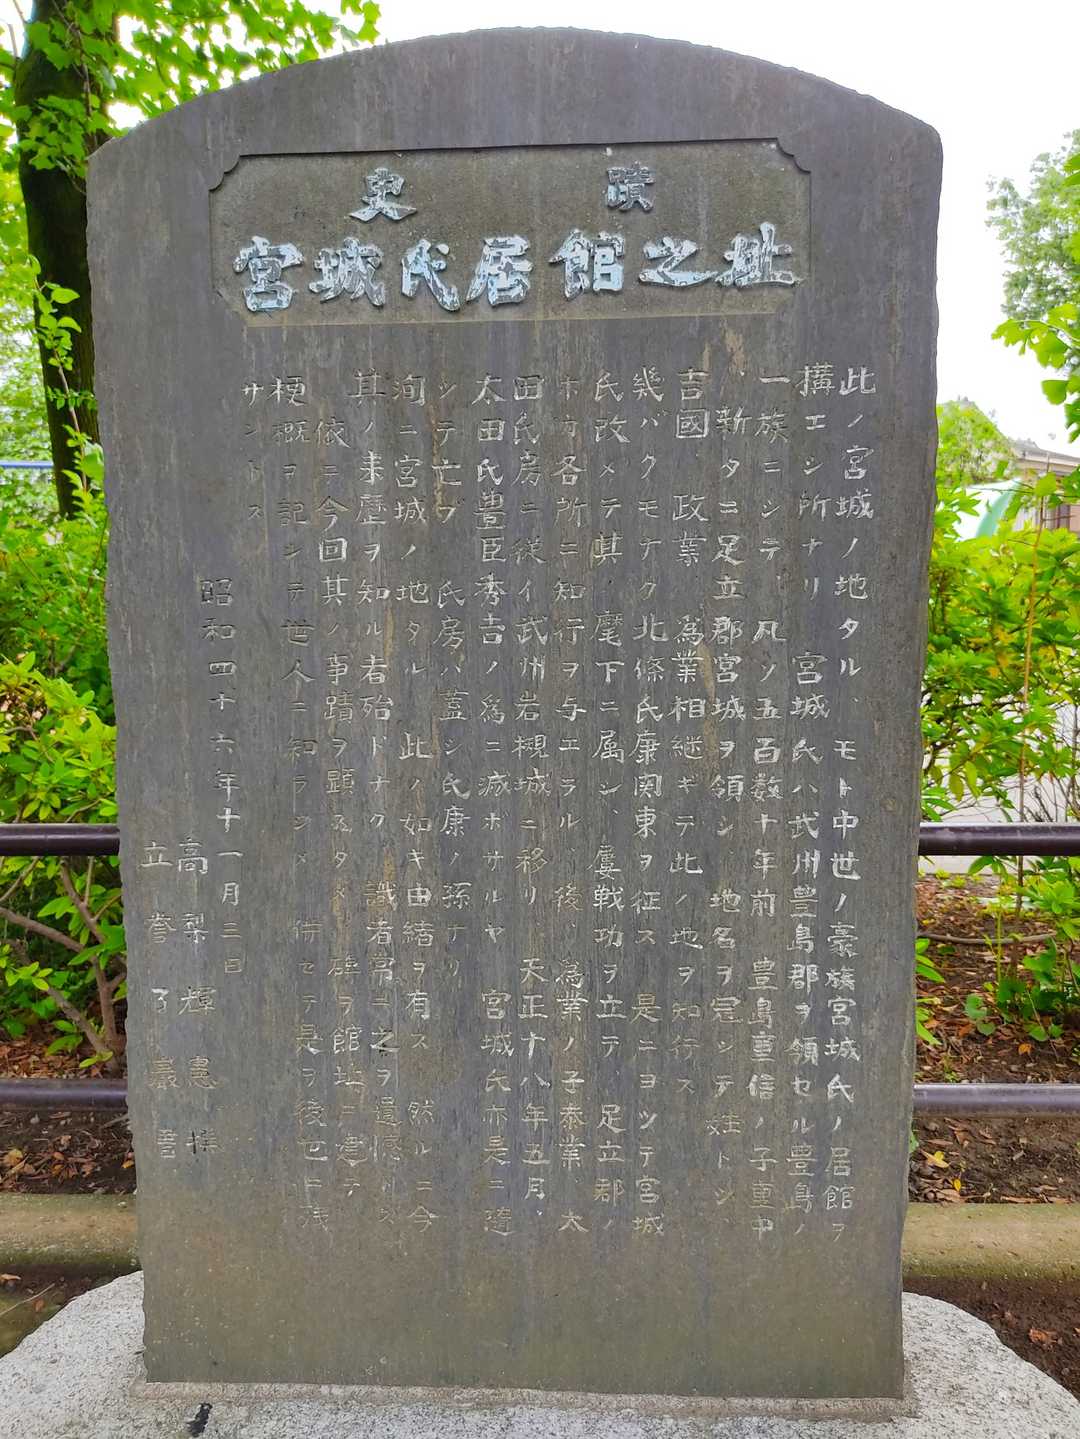 史蹟
宮城氏居館之址
此ノ宮城ノ地タル、モト中世ノ豪族宮城氏ノ居館ヲ
構エシ所ナリ　宮城氏ハ武州豊島郡ヲ領セル豊島ノ
一族ニシテ　凡ソ五百数十年前　豊島重信ノ子重中
新タニ足立郡宮城ヲ領シ、地名ヲ冠シテ姓トシ、
吉國、政業、為業相継ギテ此ノ地ヲ知行ス
幾バクモナク北條氏康関東ヲ征ス　是ニヨツテ宮城
氏改メテ其ノ麾下ニ属シ、屢戦功ヲ立テ、足立郡ノ
ホカ各所ニ知行ヲ与エラル、後、為業ノ子泰業、太
田氏房ニ従イ武州岩槻城ニ移リ　天正十八年五月、
太田氏豊臣秀吉ノ為ニ滅ボサルヤ　宮城氏亦是ニ随
シテ亡ブ　氏房ハ蓋シ氏康ノ孫ナリ
洵ニ宮城ノ地タル　此ノ如キ由緒ヲ有ス　然ルニ今
其ノ来歴ヲ知ル者殆ドナク、識者常ニ之ヲ遺憾トス
依テ今回其ノ事蹟ヲ顕スタメ碑ヲ館址ニ建テ
梗概ヲ記シテ世人ニ知ラシメ　併セテ是ヲ後世ニ残
サントス
昭和四十六年十一月三日
高梨輝憲撰
立誉了義書